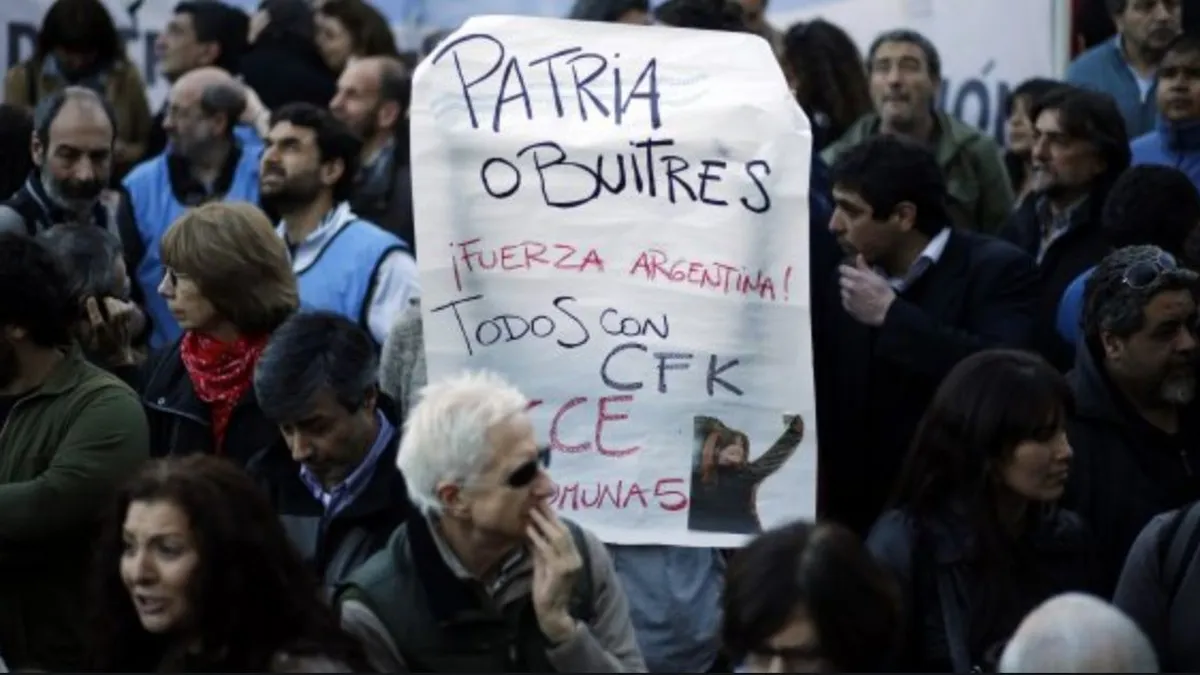 PATRIA
O BUITRES
¡FUERZA ARGENTINA!
TODOS CON
CFK
CCE
COMUNA 5